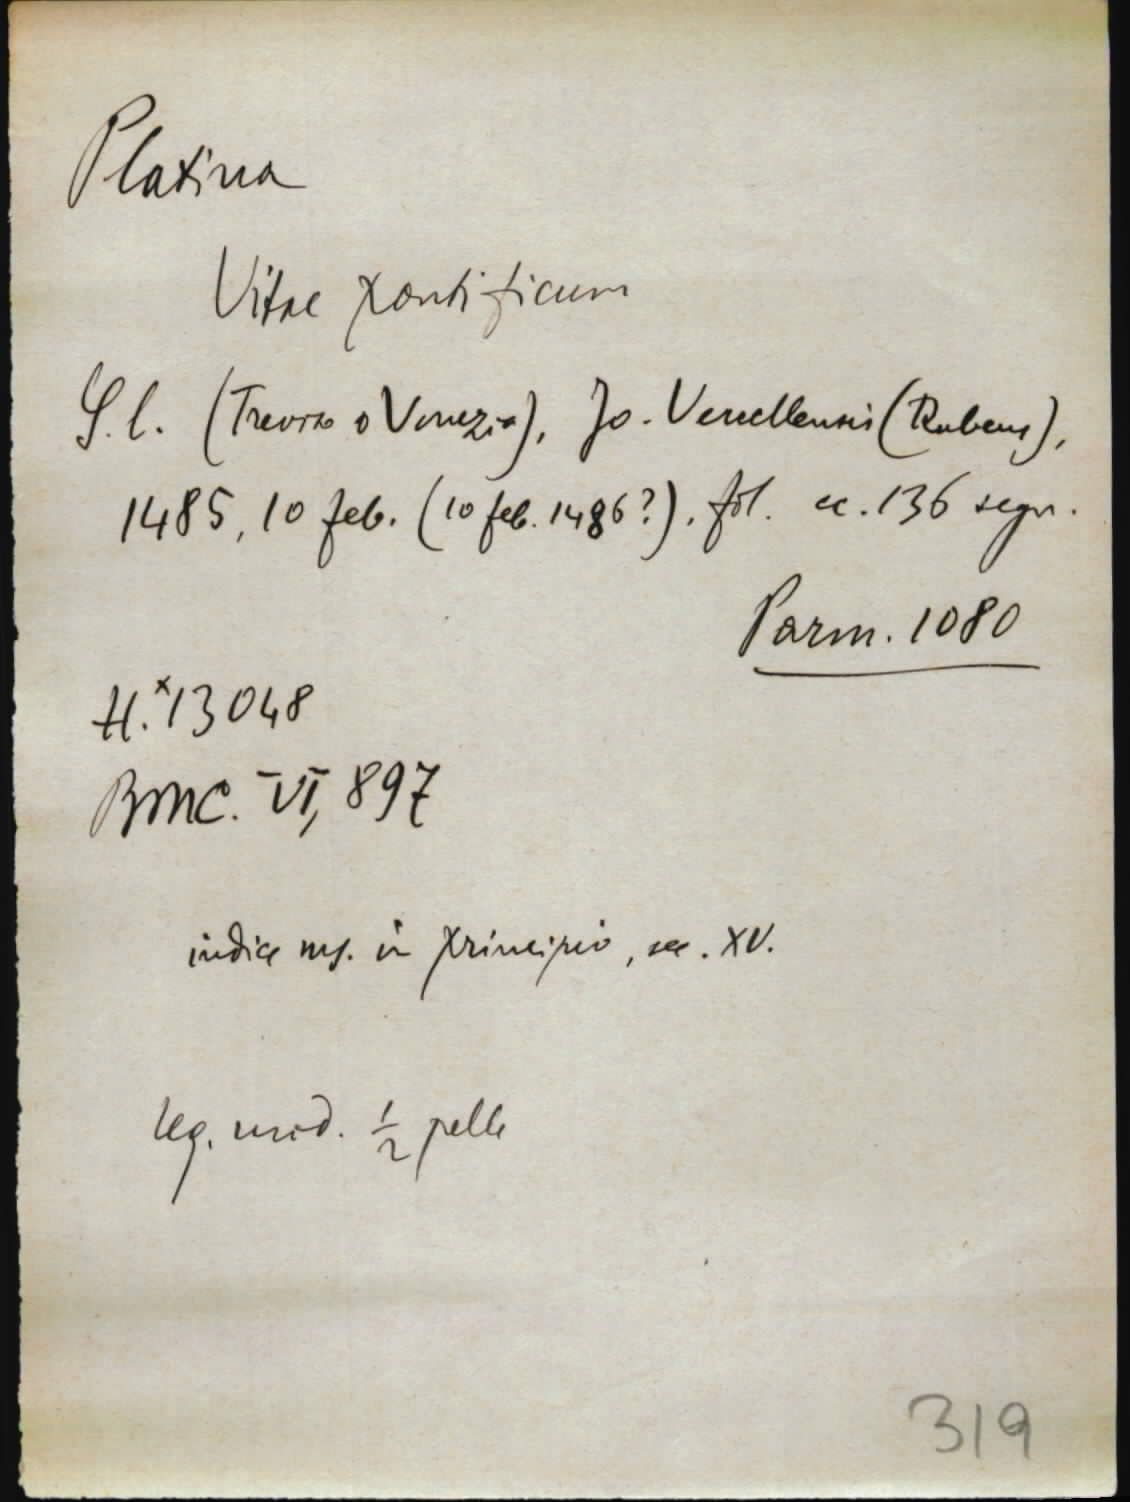 Platina
Vitae pontificum
S. l. (Treviso o Venezia), Jo. Vercellensis (Rubeus),
1485, 10 feb. (10 feb. 1486?). fol. cc. 136 segn.
Parm. 1080
H.*13048
BMC. VI, 897
indice ms. in principio, sec. XV.
leg. mod. ½ pelle
319